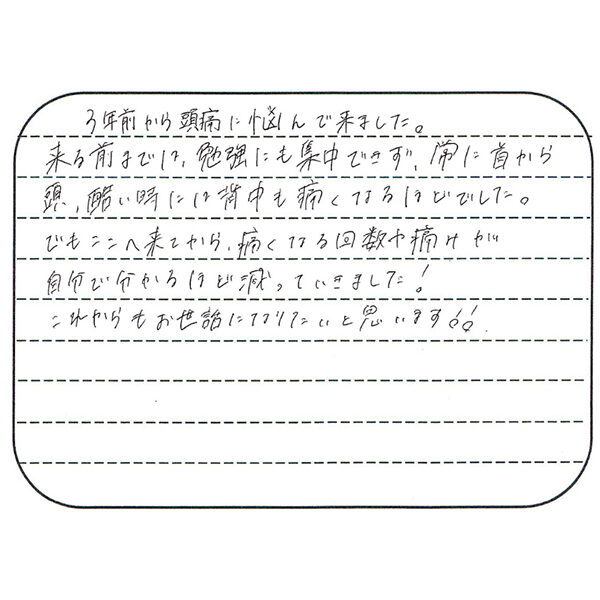 3年前から頭痛に悩んで来ました。
来る前までは、勉強にも集中できず、常に首から
頭、酷い時には背中も痛くなるほどでした。
でもここへ来てから、痛くなる回数や痛みが
自分で分かるほど減っていきました！
これからもお世話になりたいと思います!!